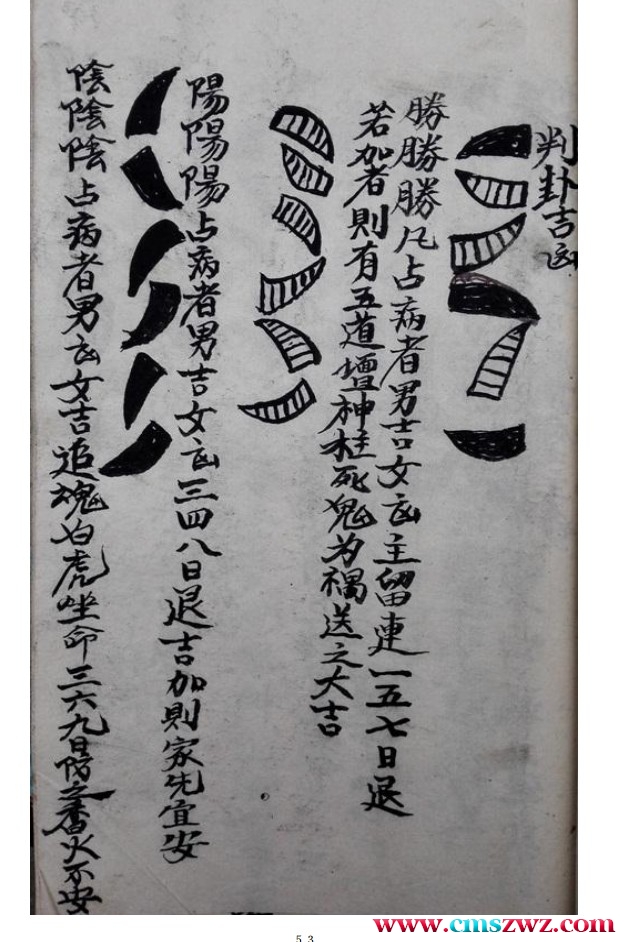 判卦吉凶
勝勝勝凡占病者男吉女凶主留連一五七日退
若加者則有五道壇神枉死鬼为禍送之大吉
陽陽陽占病者男吉女凶三四八日退吉加則家先宜安
陰陰陰占病者男凶女吉追魂白虎坐命三六九日防之香火不安
www.cmszwz.com
53